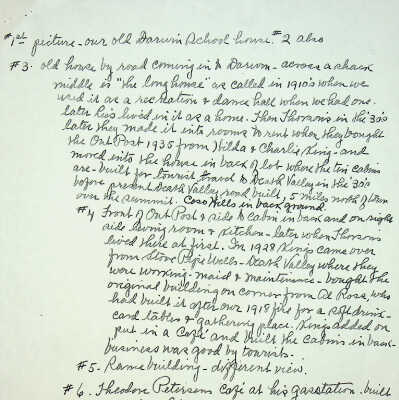 #1st picture - our old Darwin School house. #2 also
#3. old house by road coming in to Darwin - across a shack
middle is "the long house" as called in 1910's when we
used it as a recreation & dance hall when we had one.
later lived in it as a home. Then Thorsons in the 30's
later they made it into rooms to rent when they bought
the Out Post 1935 from Hilda & Charlie King - and
moved into the house in back of lot where the tin cabins
are - built for tourist travel to Death Valley in the 30's
before present Death Valley road built, 5 miles north of town
over the summit. Coso Hills in back ground
#4 Front of Out Post & side to Cabin in back and on right
side living room & kitchen - later when Thorsons
lived there at first. In 1928 Kings came over
from Stove Pipe Wells - Death Valley where they
were working - maid & maintenance - bought the
original building on corner from De Rosa, who
had built it after our 1918 fire for a soft drink -
card tables & gathering place. Kings added on
put in a Cafe and built the cabins in back -
business was good by tourists.
#5 - Same building - different view.
#6. Theodore Petersens cafe at his gas station. built